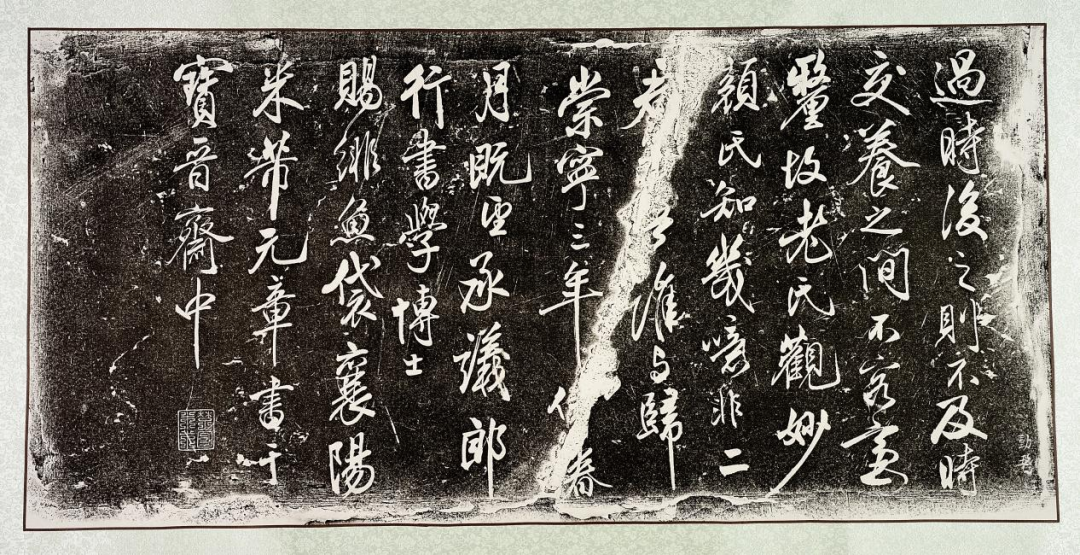 過時後之則不及時
交養之間不容毫
釐故老氏觀妙
顏氏知幾噫非二
君誰与歸
崇寧三年春
月既望承議郎
行書學博士
賜緋魚袋襄陽
米芾元章書于
寶晉齋中